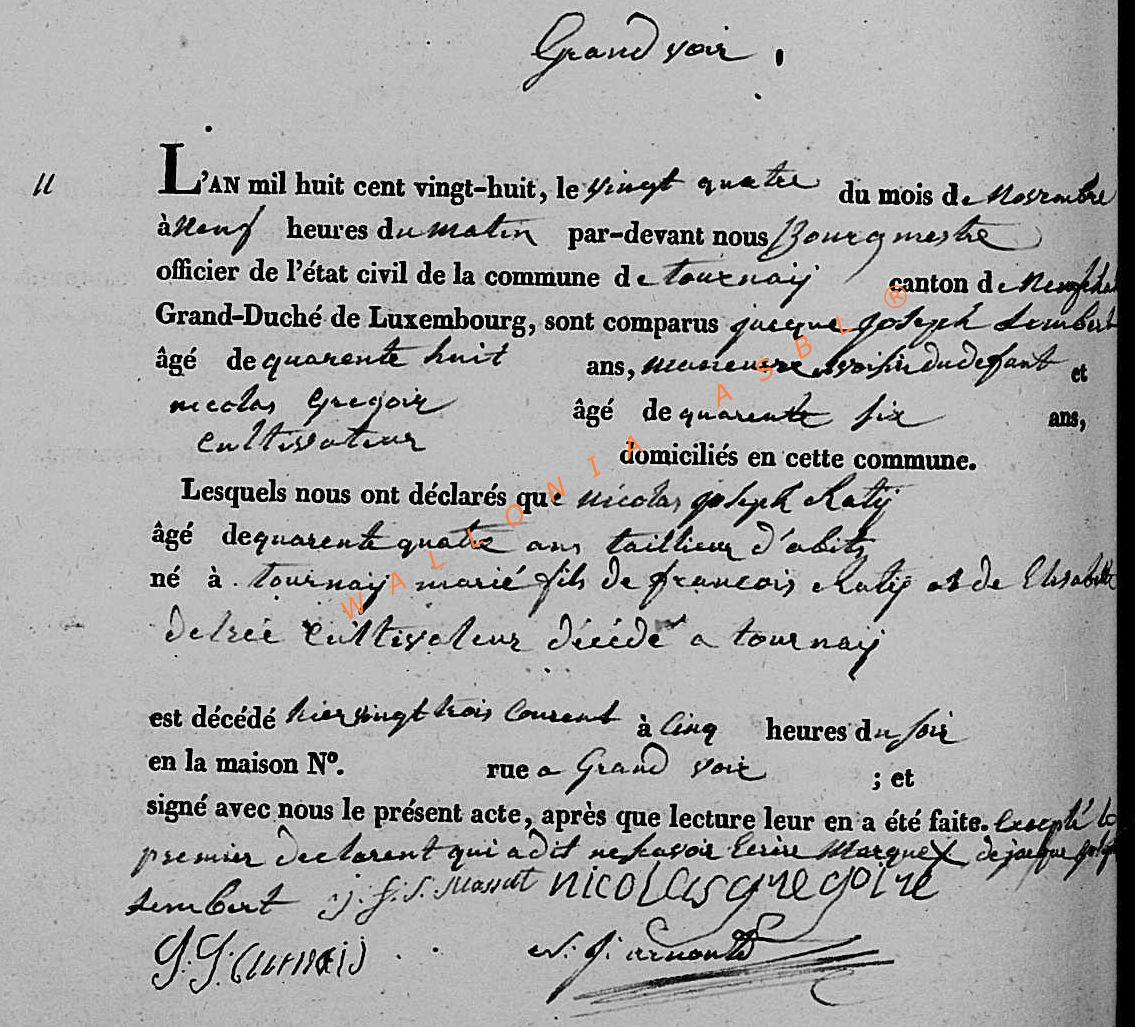 Grand voir.
11
L'AN mil huit cent vingt-huit, le vingt quatre du mois de Novembre
à neuf heures du matin par-devant nous Bourgmestre
officier de l'état civil de la commune de tournay canton de Neufchat
Grand-Duché de Luxembourg, sont comparus jacque joseph Lambert
âgé de quarente huit ans, maneuvre voisin du defunt et
nicolas Gregoir âgé de quarente six ans,
cultivateur domiciliés en cette commune.
Lesquels nous ont déclarés que nicolas joseph Raty
âgé de quarente quatre ans taillieur d'abits
né à tournay marié fils de francois Raty et de Elisabette
cultivateur décédé a tournay
est décédé hier vingt trois courent à cinq heures du soir
en la maison Nº. rue a Grand voir ; et
signé avec nous le présent acte, après que lecture leur en a été faite. Excepté le
premier declarent qui a dit ne savoir Ecrire Marque X de jacque
Lambert nicolas gregoire
N. J. arnould
WALLONIA ASBL ®